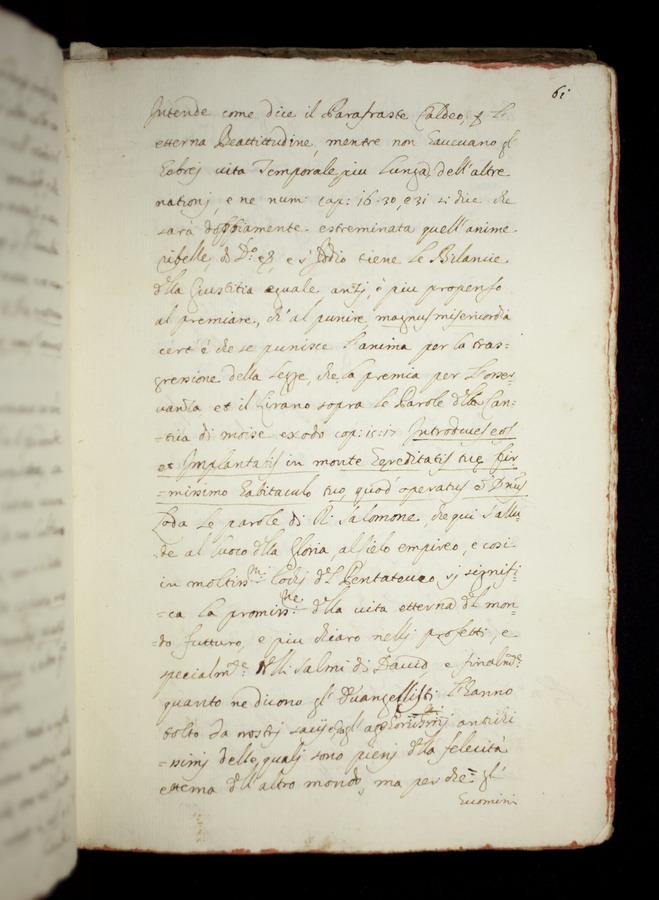 61
Intende come dice il Parafraste Caldeo, p̱ la
etterna Beattitudine, mentre non haueuano gl'
Eobrej uita Temporale piu Lunga dell'altre
nationj, e ne num: cap: 16. 30, e 31 si dice che
sarà doppiamente estreminata quell'anime
ribelle, e s'Iddio tiene le Bilancie
d'lla Giustitia eguale anzj, è piu propenso
al premiare, ch'al punire, magnus misericordia
cert'è che se punisce l'hanima per la tras=
gressione della legge, che la premia per l'osser=
uanza et il Lirano sopra le Parole d'lla Can=
=tica di moise exodo cap: 15: 17 Introduces eos
et Implantatis in monte Ereditatis tue fir
=missimo habitaculo tuo, quod operatus es Dnus
Loda le parole di R: Salomone, che qui s'allu=
=de al luoco d'lla Gloria, al sielo empireo, e così
in moltiss:mi lochj d'l Pentateuco si signifi=
=ca la promiss:ne d'lla uita etterna d'l mon=
=do futturo, e piu chiaro nellj profetti, e
specialm.te nelli salmi di Dauid e finalm.te
quanto ne dicono gl'Euangellisti l'hanno
tolto da nostrj sauij antichi
=ssimj delle qualj sono pienj d'lla felicità
etterna d'll'altro mondo, ma per che = gl'
huomini